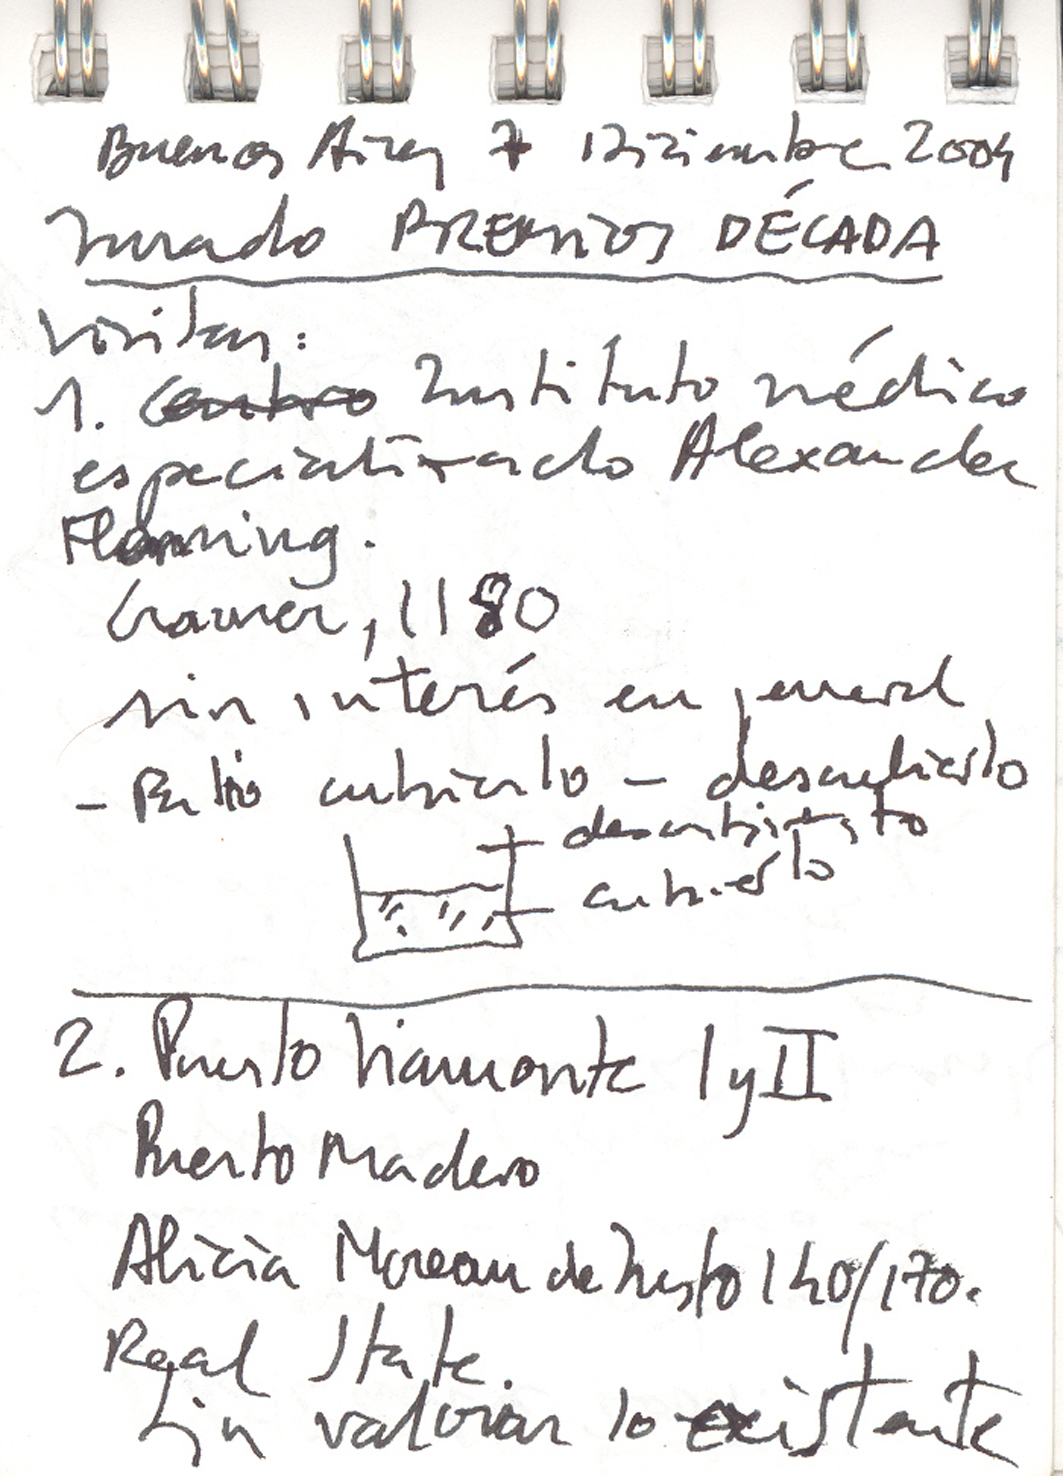 Buenos Aires 7 Diciembre 2004
Jurado PREMIOS DÉCADA
Visitas:
1. Centro Instituto médico
especializado Alexander
Fleming.
Cramer, 1180
sin interés en general
- Patio cubierto - descubierto
descubierto
cubierto
2. Puerto Viamonte I y II
Puerto Madero
Alicia Moreau de Justo 140/170.
Real State.
Sin valorar lo existente